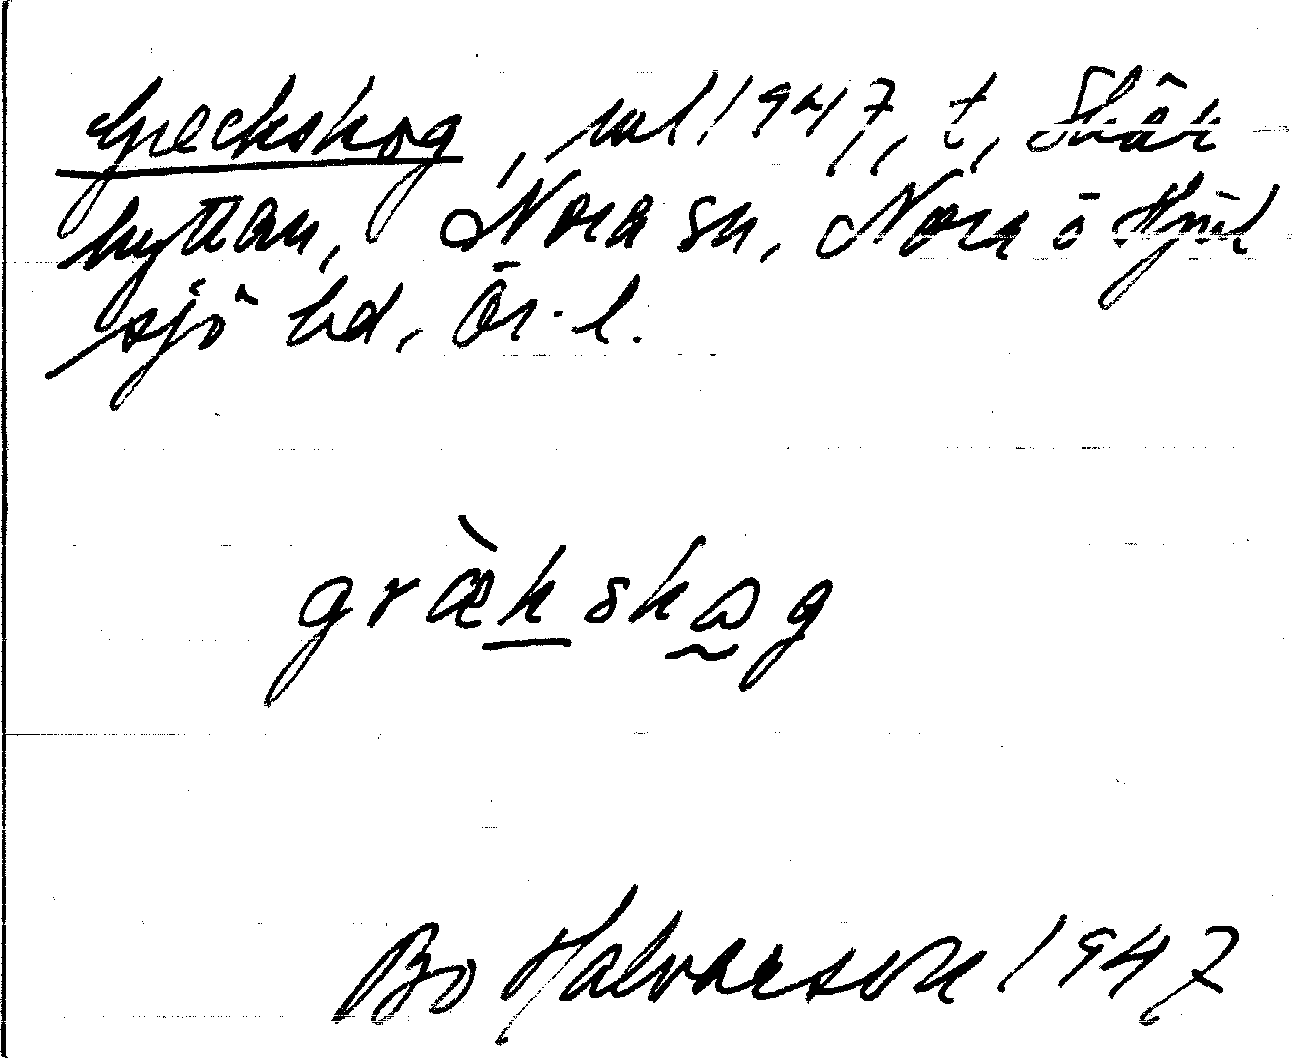 Greckskog, ul 1947, t. Skär-
hyttan, Nora sn, Nora o Hjul
sjö bd, Ör. l.
grækskog
Bo Halvarson 1947